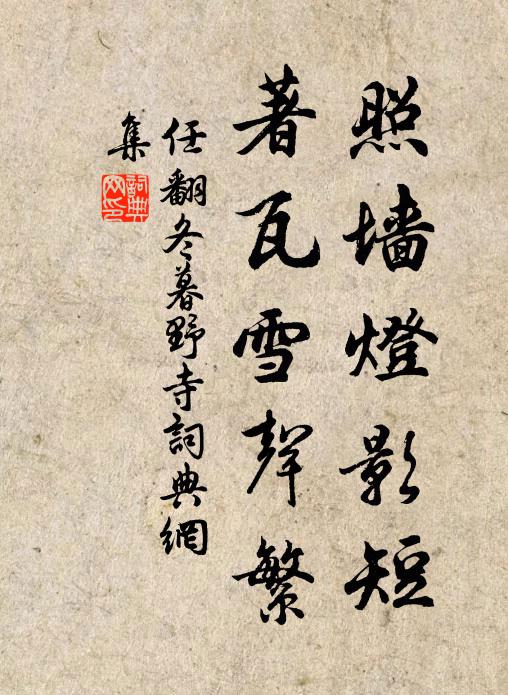 照墙燈影短
著瓦雪聲繁
任翻冬暮野寺詞典網
集
詞典
网印